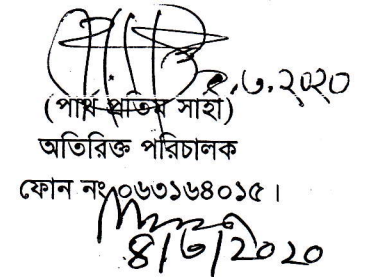 ৫.৩.২০২০
(পার্থ প্রতিম সাহা)
অতিরিক্ত পরিচালক
ফোন নং ০৬৩১৬৪০১৫।
8/৩/2020